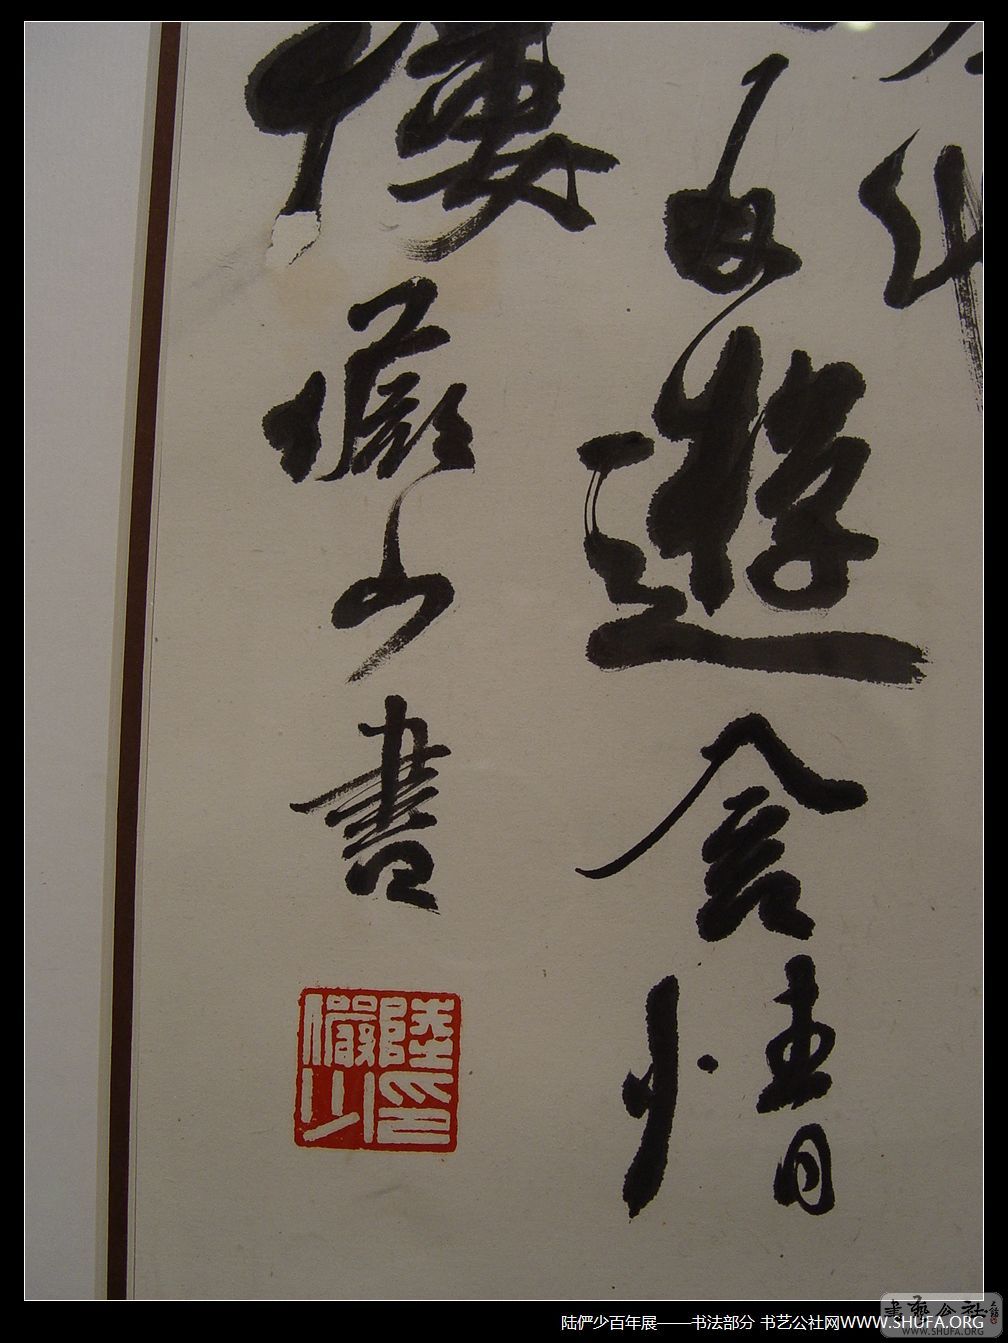 自遊含情
樓儼少書
陸儼少印
陆俨少百年展——书法部分 书艺公社网WWW.SHUFA.ORG
书艺公社
WWW.SHUFA.ORG